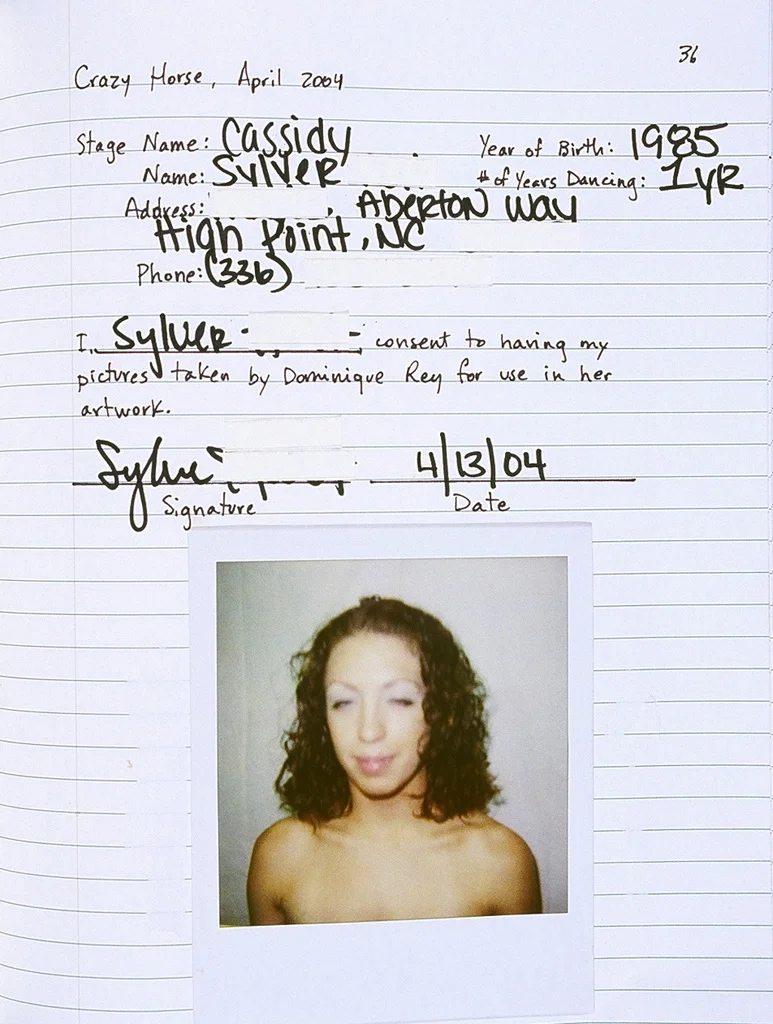 36
Crazy Horse, April 2004
Stage Name: Cassidy Year of Birth: 1985
Name: Sylver # of Years Dancing: 1yR
Address: , Aberton Way
High Point, NC
Phone: (336)
I, Sylver consent to having my
pictures taken by Dominique Rey for use in her
artwork.
4/13/04
Signature Date